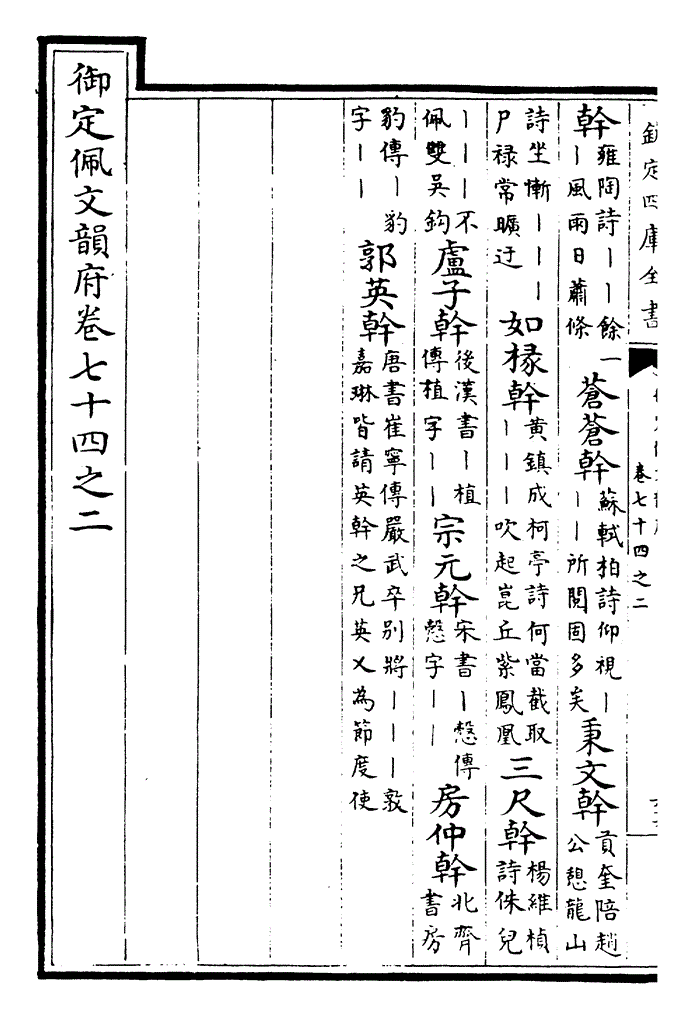 欽定四庫全書
卷七十四之二
幹雍陶詩丨丨餘一丨風雨日蕭條 蒼蒼幹蘇軾柏詩仰視丨丨丨所閱固多矣 秉文幹貢奎陪趙公憩龍山
詩坐慚丨丨丨尸禄常曠迂 如椽幹黄鎮成柯亭詩何當截取丨丨丨吹起崑丘紫鳳凰 三尺幹楊維楨詩侏兒
丨丨丨不佩雙吳鈎 盧子幹後漢書丨植傳植字丨丨 宗元幹宋書丨慤傳慤字丨丨 房仲幹北齊書房
豹傳丨豹字丨丨 郭英幹唐書崔寧傳嚴武卒别將丨丨丨敦嘉琳皆請英幹之兄英乂為節度使
御定佩文韻府卷七十四之二